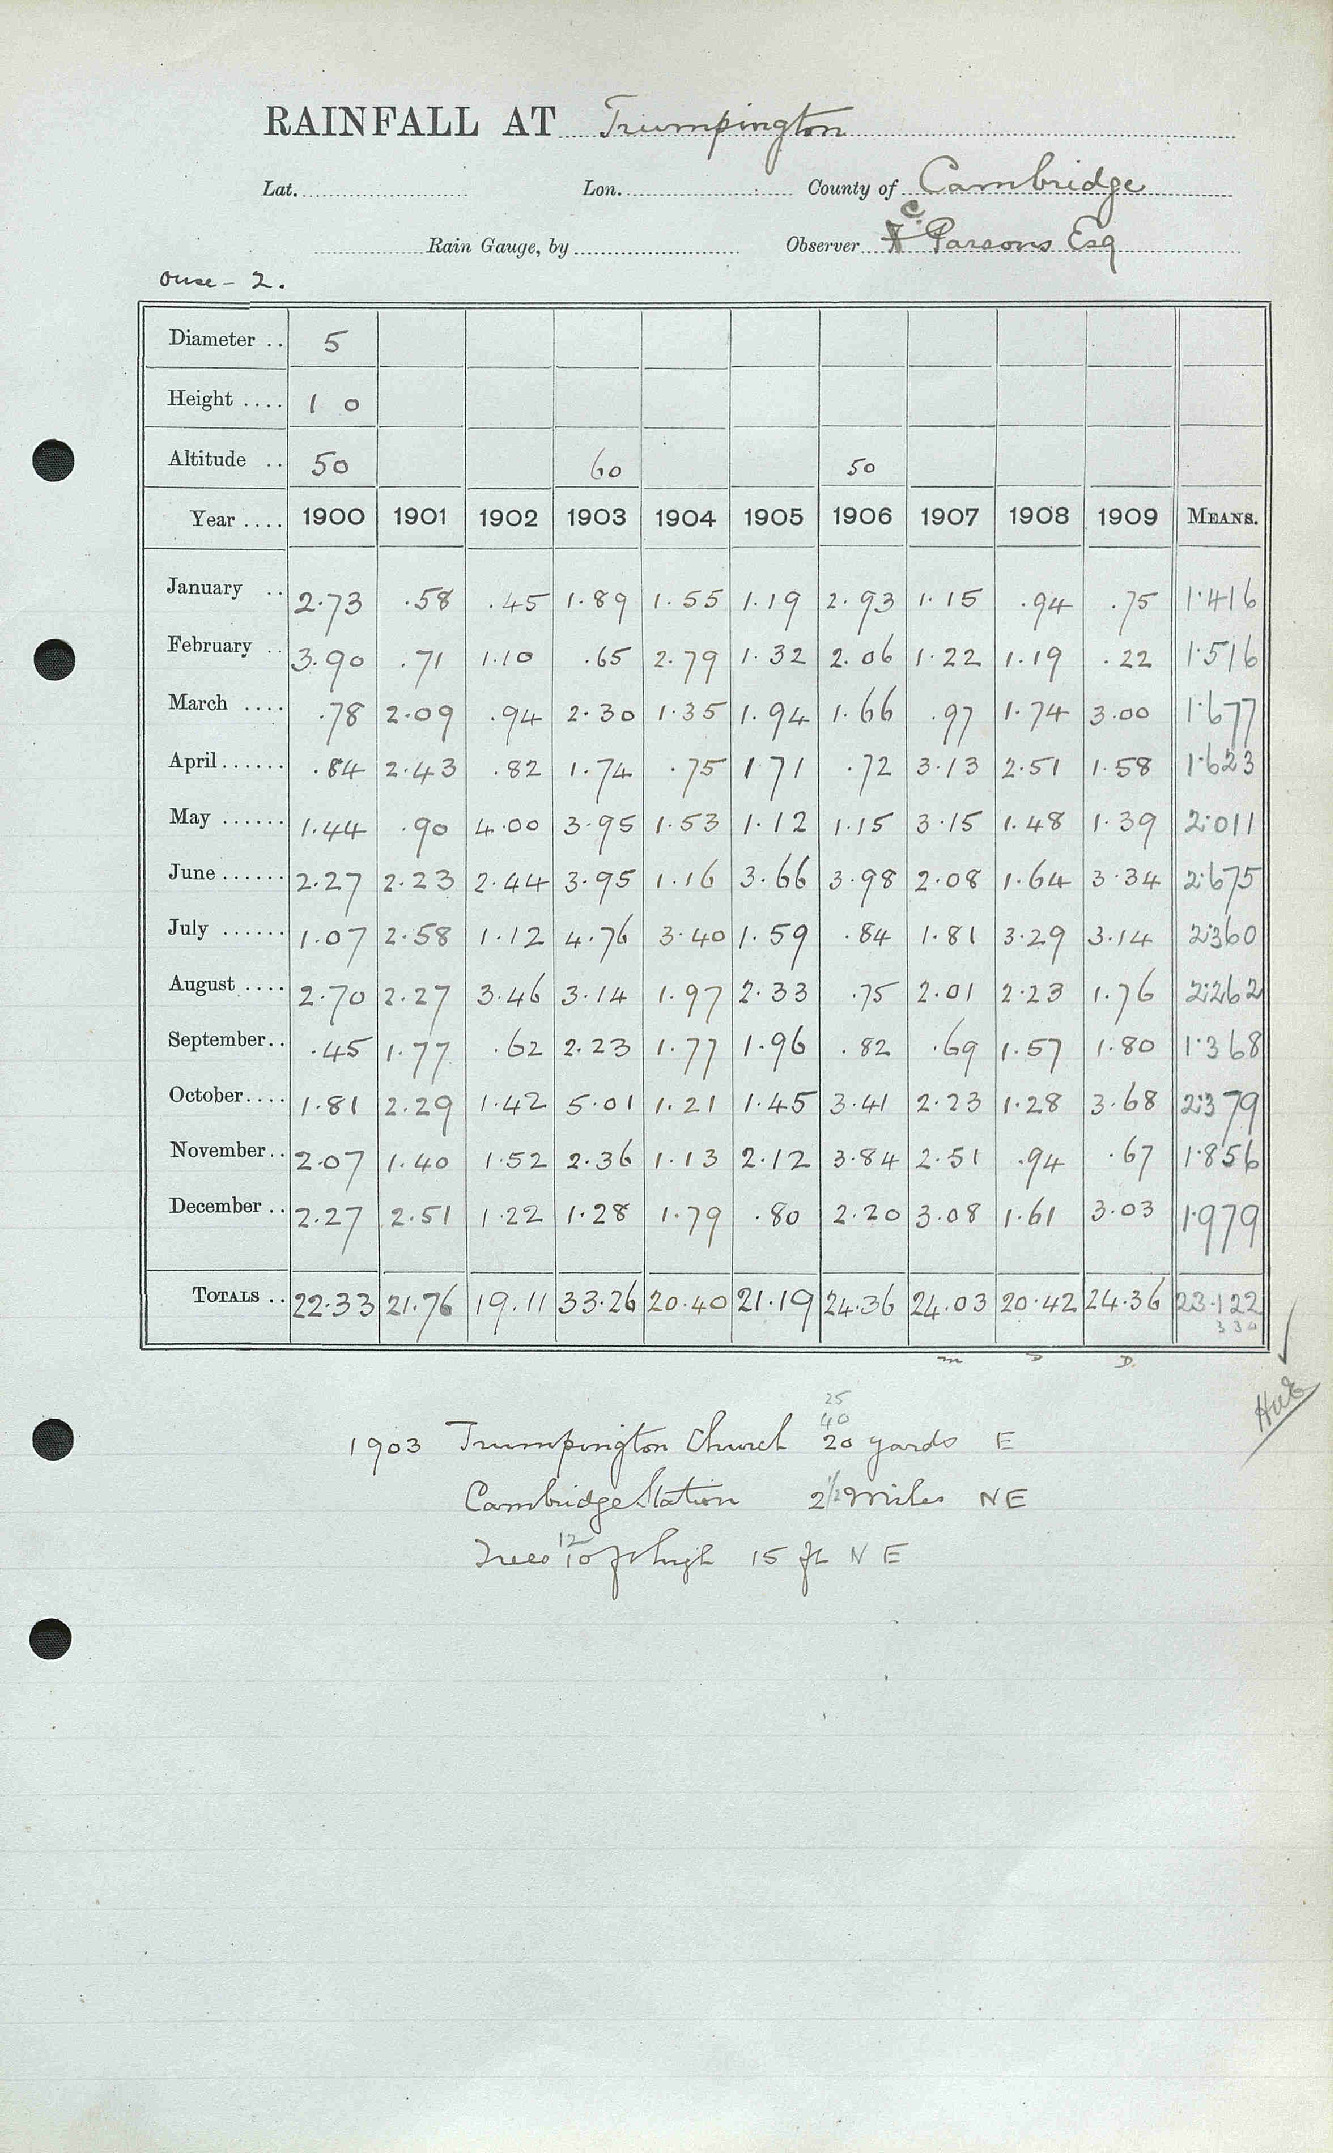 RAINFALL AT Trumpington
Lat. Lon. County of Cambridge
Rain Gauge, by Observer C. Parsons Esq
Ouse - 2.
Diameter .. 5
Height .... 1 0
Altitude .. 50 60 50
Year .... 1900 1901 1902 1903 1904 1905 1906 1907 1908 1909 MEANS.
January .. 2.73 .58 .45 1.89 1.55 1.19 2.93 1.15 .94 .75 1.416
February .. 3.90 .71 1.10 .65 2.79 1.32 2.06 1.22 1.19 .22 1.516
March .... .78 2.09 .94 2.30 1.35 1.94 1.66 .97 1.74 3.00 1.677
April...... .84 2.43 .82 1.74 .75 1 71 .72 3.13 2.51 1.58 1.623
May ...... 1.44 .90 4.00 3.95 1.53 1.12 1.15 3.15 1.48 1.39 2.011
June ...... 2.27 2.23 2.44 3.95 1.16 3.66 3.98 2.08 1.64 3.34 2.675
July ...... 1.07 2.58 1.12 4.76 3.40 1.59 .84 1.81 3.29 3.14 2.360
August .... 2.70 2.27 3.46 3.14 1.97 2.33 .75 2.01 2.23 1.76 2.262
September.. .45 1.77 .62 2.23 1.77 1.96 .82 .69 1.57 1.80 1.368
October.... 1.81 2.29 1.42 5.01 1.21 1.45 3.41 2.23 1.28 3.68 2.379
November.. 2.07 1.40 1.52 2.36 1.13 2.12 3.84 2.51 .94 .67 1.856
December .. 2.27 2.51 1.22 1.28 1.79 .80 2.20 3.08 1.61 3.03 1.979
TOTALS .. 22.33 21.76 19.11 33.26 20.40 21.19 24.36 24.03 20.42 24.36 23.122
m D D.
25
40
1903 Trumpington Church 20 yards E
Cambridge Station 2 1/2 miles NE
12
Trees 10 ft high 15 ft N E